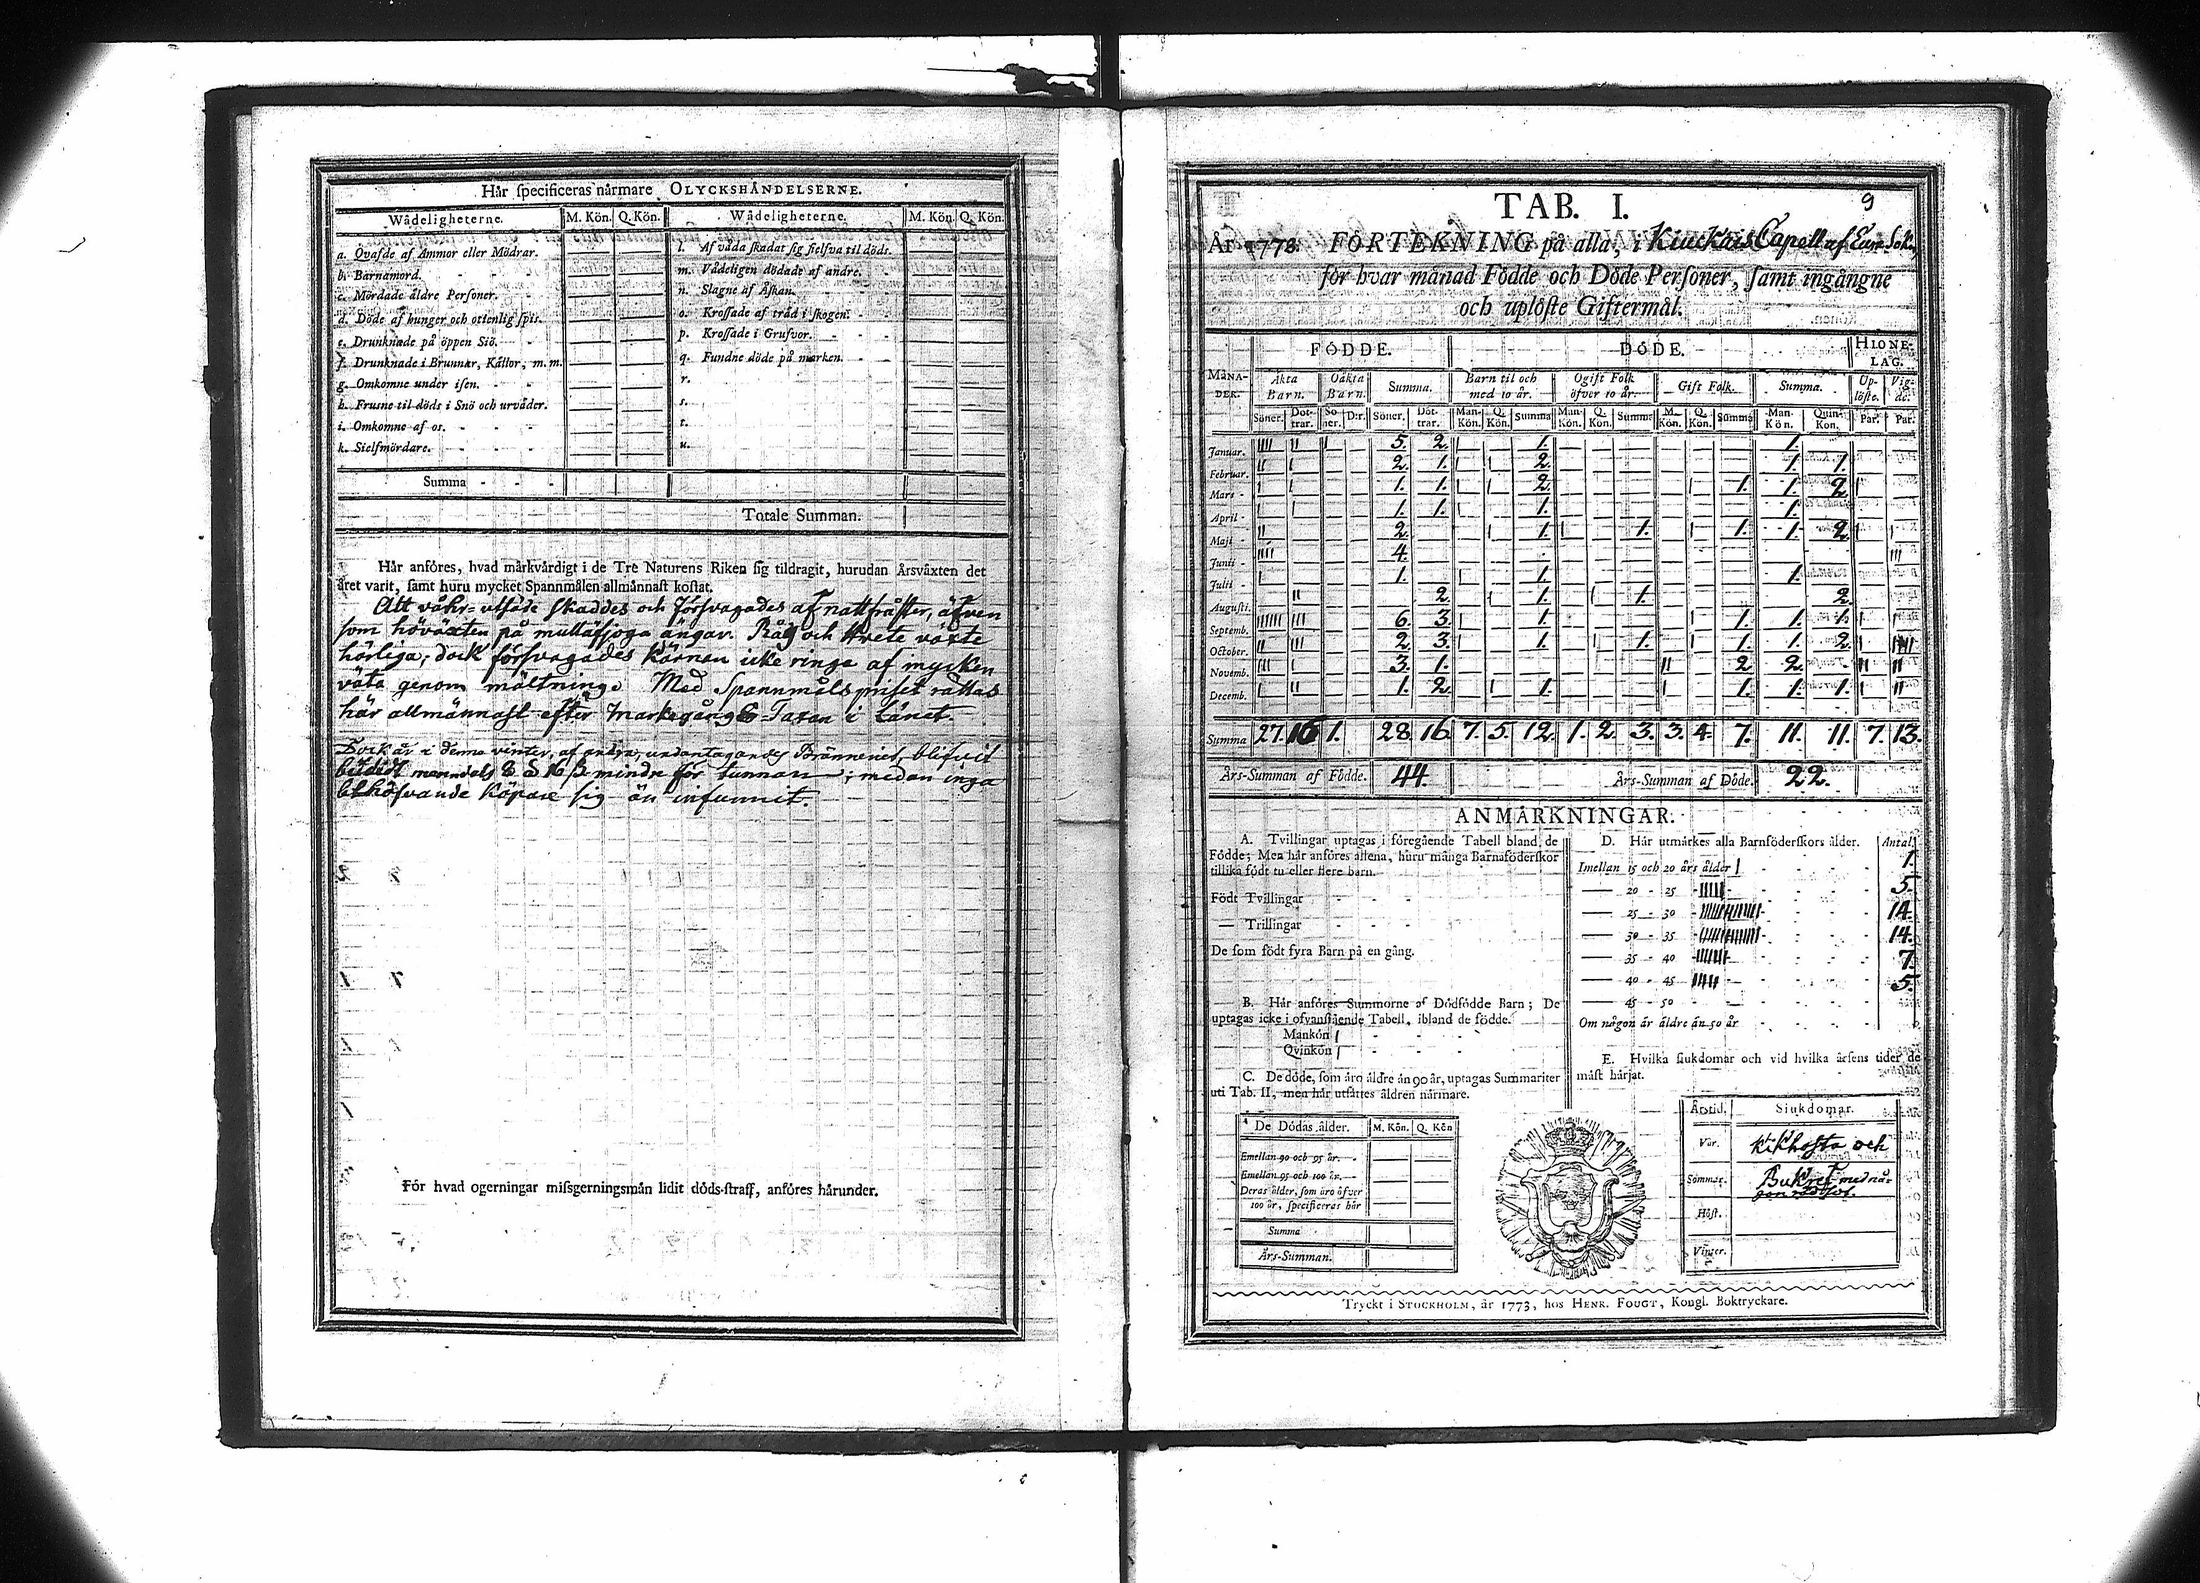 Hår specificeras nårmare OLYCKSHÅNDELSERNE.
Wådeligheterne. M. Kön. Q. Kön. Wådeligheterne. M. Kön. Q. Kön.
a. Qvafde af Ammor eller Mödrar.
b. Barnamord.
c. Mördade åldre Personer.
d. Döde af hunger och otienlig spis.
e. Drunknade på öppen Siö.
f. Drunknade i Brunnar, Kållor, m. m.
g. Omkomne under isen.
h. Frusne til döds i Snö och urvåder.
i. Omkomne af os.
k. Sielfmördare.
l. Af våda skadat sig sielfva til döds.
m. Vådeligen dödade af andre.
n. Slagne af Åskan.
o. Krossade af tråd i skogen.
p. Krossade i Grufvor.
q. Fundne döde på marken.
r.
s.
t.
u.
Summa
Totale Summan.
Hår anföres, hvad mårkvårdigt i de Tre Naturens Riken sig tildragit, hurudan Årsvåxten det
året varit, samt huru mycket Spannmålen allmånnast kostat.
Alt våhr-utsäde skaddes och försvagades af nattfråster, äfven
som höväxten på mullåfjoga ängar. Råg och Hvete växte
härliga; dock försvagades kärnan icke ringa af mycken
väta genom mältning. Med Spannmåls priset rättas
här allmännast efter Markegångs Taxan i Länet.
Dock är i denna vinter, af andra, undantagandes Bränneriet, blifvit
budit 8 d 16 ß mindre för tunnan; medan inga
behöfvande köpare sig än infunnit.
För hvad ogerningar missgerningsmån lidit döds-straff, anföres hårunder.
TAB. I. 9
År 1778. FÖRTEKNING på alla, i Kiuckais Capell af Eura Sokn,
för hvar månad Födde och Döde Personer, samt ingångne
och uplöste Giftermål.
MÅNADER. FÖDDE. DÖDE. HIONELAG.
Åkta Barn. Oåkta Barn. Summa. Barn til och med 10 år. Ogift Folk öfver 10 år. Gift Folk. Summa. Uplöste. Vigde.
Söner. Döttrar. Söner. D:r. Söner. Döttrar. Mankön. Q. Kön. Summa Mankön. Q. Kön. Summa M. Kön. Q. Kön. Summa Mankön. Quinkon. Par. Par.
Januar. |||| || | 5. 2. | 1. 1.
Februar. || | 2. 1. | | 2. 1. 1.
Mars | | 1. 1. | | 2. | 1. 1. 2. |
April | | 1. 1. | 1. 1.
Maji || 2. | 1. | 1. | 1. 1. 2. | |
Junii |||| 4. |||
Julii | 1. | 1. 1.
Augusti. || 2. | 1. | 1. 2.
Septemb. |||||| ||| 6. 3. | 1. | 1. 1. 1. |
October. || ||| 2. 3. | 1. | 1. | 1. 1. 2. | |||||
Novemb. ||| | 3. 1. || 2 2. || ||
Decemb. | || 1. 2. | 1. | 1. 1. 1. | ||
Summa 27. 16 1. 28. 16. 7. 5. 12. 1. 2. 3. 3. 4. 7. 11. 11. 7. 13.
Års-Summan af Födde. 44. Års-Summan af Döde. 22.
ANMÅRKNINGAR.
A. Tvillingar uptagas i föregående Tabell bland de
Födde; Men hår anföres allena, huru många Barnaföderskor
tillika födt tu eller flere barn.
Födt Tvillingar
— Trillingar
De som födt fyra Barn på en gång.
B. Hår anföres Summorne af Dödfödde Barn; De
uptagas icke i ofvanstående Tabell, ibland de födde.
Mankön |
Qvinkön |
C. De döde, som åro åldre ån 90 år, uptagas Summariter
uti Tab. II, men hår utsåttes åldren nårmare.
De Dödas ålder. M. Kön. Q. Kön
Emellan 90 och 95 år.
Emellan 95 och 100 år.
Deras ålder, som åro öfver
100 år, specificeras hår
Summa
Års-Summan.
D. Hår utmårkes alla Barnföderskors ålder. Antal.
Imellan 15 och 20 års ålder | 1.
— 20 - 25 ||||| 5.
— 25 - 30 |||||||||||||| 14.
— 30 - 35 |||||||||||||| 14.
— 35 - 40 ||||||| 7.
— 40 - 45 ||||| 5.
— 45 - 50
Om någon år åldre ån 50 år
E. Hvilka siukdomar och vid hvilka årsens tider de
måst hårjat.
Årstid. Siukdomar.
Vår. Kikhosta och
Sommar. Bukref med någon rödsot.
Höst.
Vinter.
Tryckt i STOCKHOLM, år 1773, hos HENR. FOUGT, Kongl. Boktryckare.